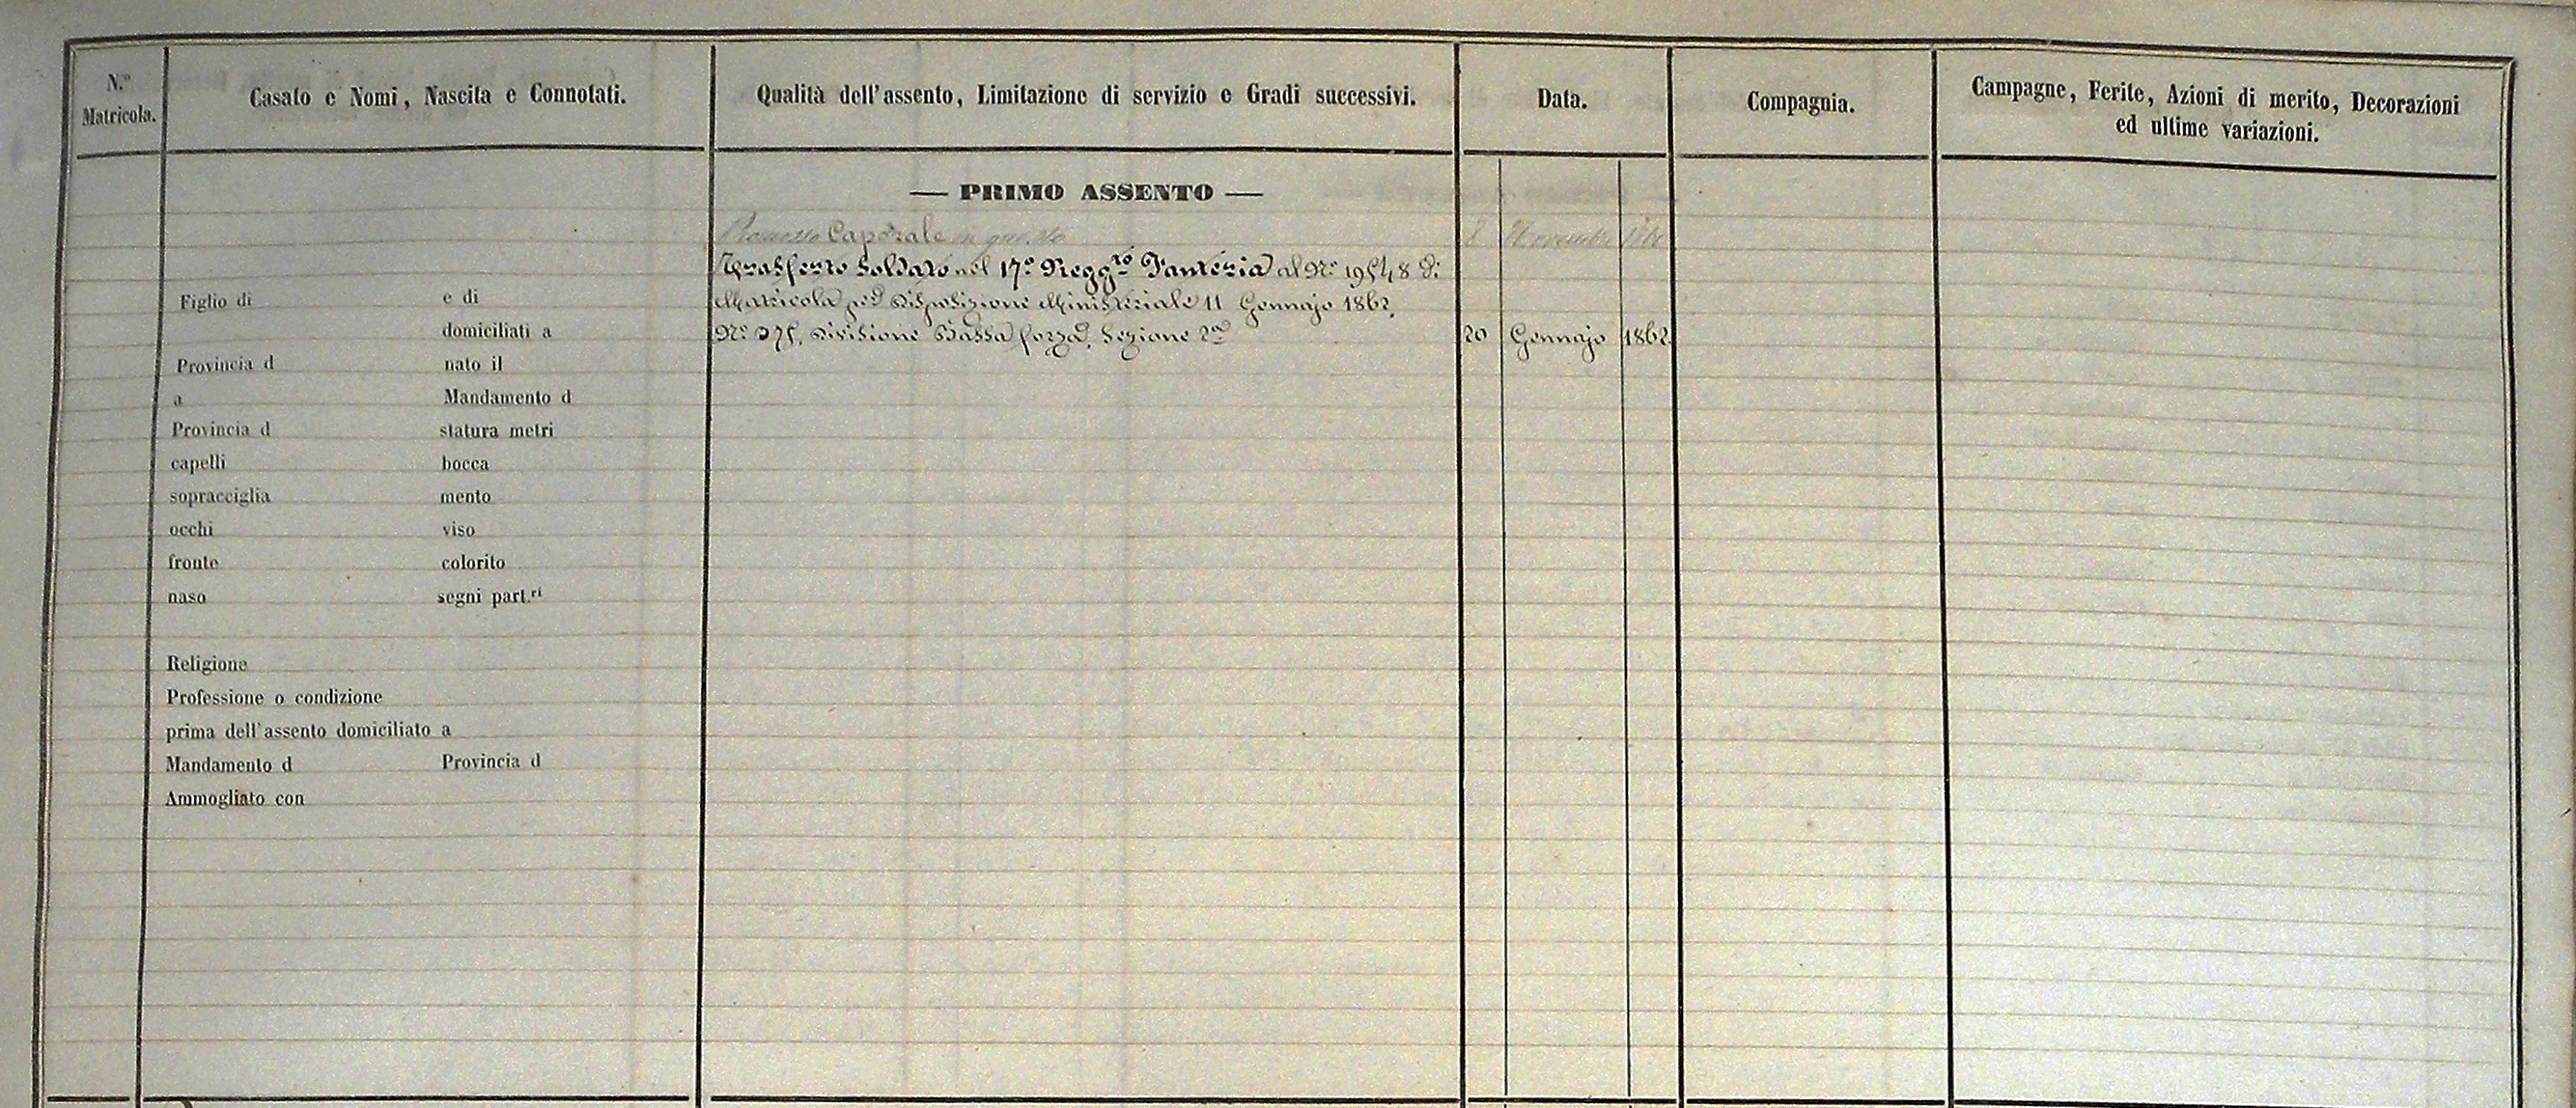 N.º Matricola.
Casato e Nomi, Nascita e Connotati.
Qualità dell'assento, Limitazione di servizio e Gradi successivi.
Data.
Compagnia.
Campagne, Ferite, Azioni di merito, Decorazioni
ed ultime variazioni.
— PRIMO ASSENTO —
Promosso Caporale in questo 8 Novembre
Trasferto Soldato nel 17º Reggto Fanteria al Nº 19548 di
Matricola per Disposizione Ministeriale 11 Gennajo 1862,
Nº 375, Divisione Bassa forza, Sezione 2a 20 Gennajo 1862
Figlio di e di
domiciliati a
Provincia d nato il
a Mandamento d
Provincia d statura metri
capelli bocca
sopracciglia mento
occhi viso
fronte colorito
naso segni part.ri
Religione
Professione o condizione
prima dell'assento domiciliato a
Mandamento d Provincia d
Ammogliato con